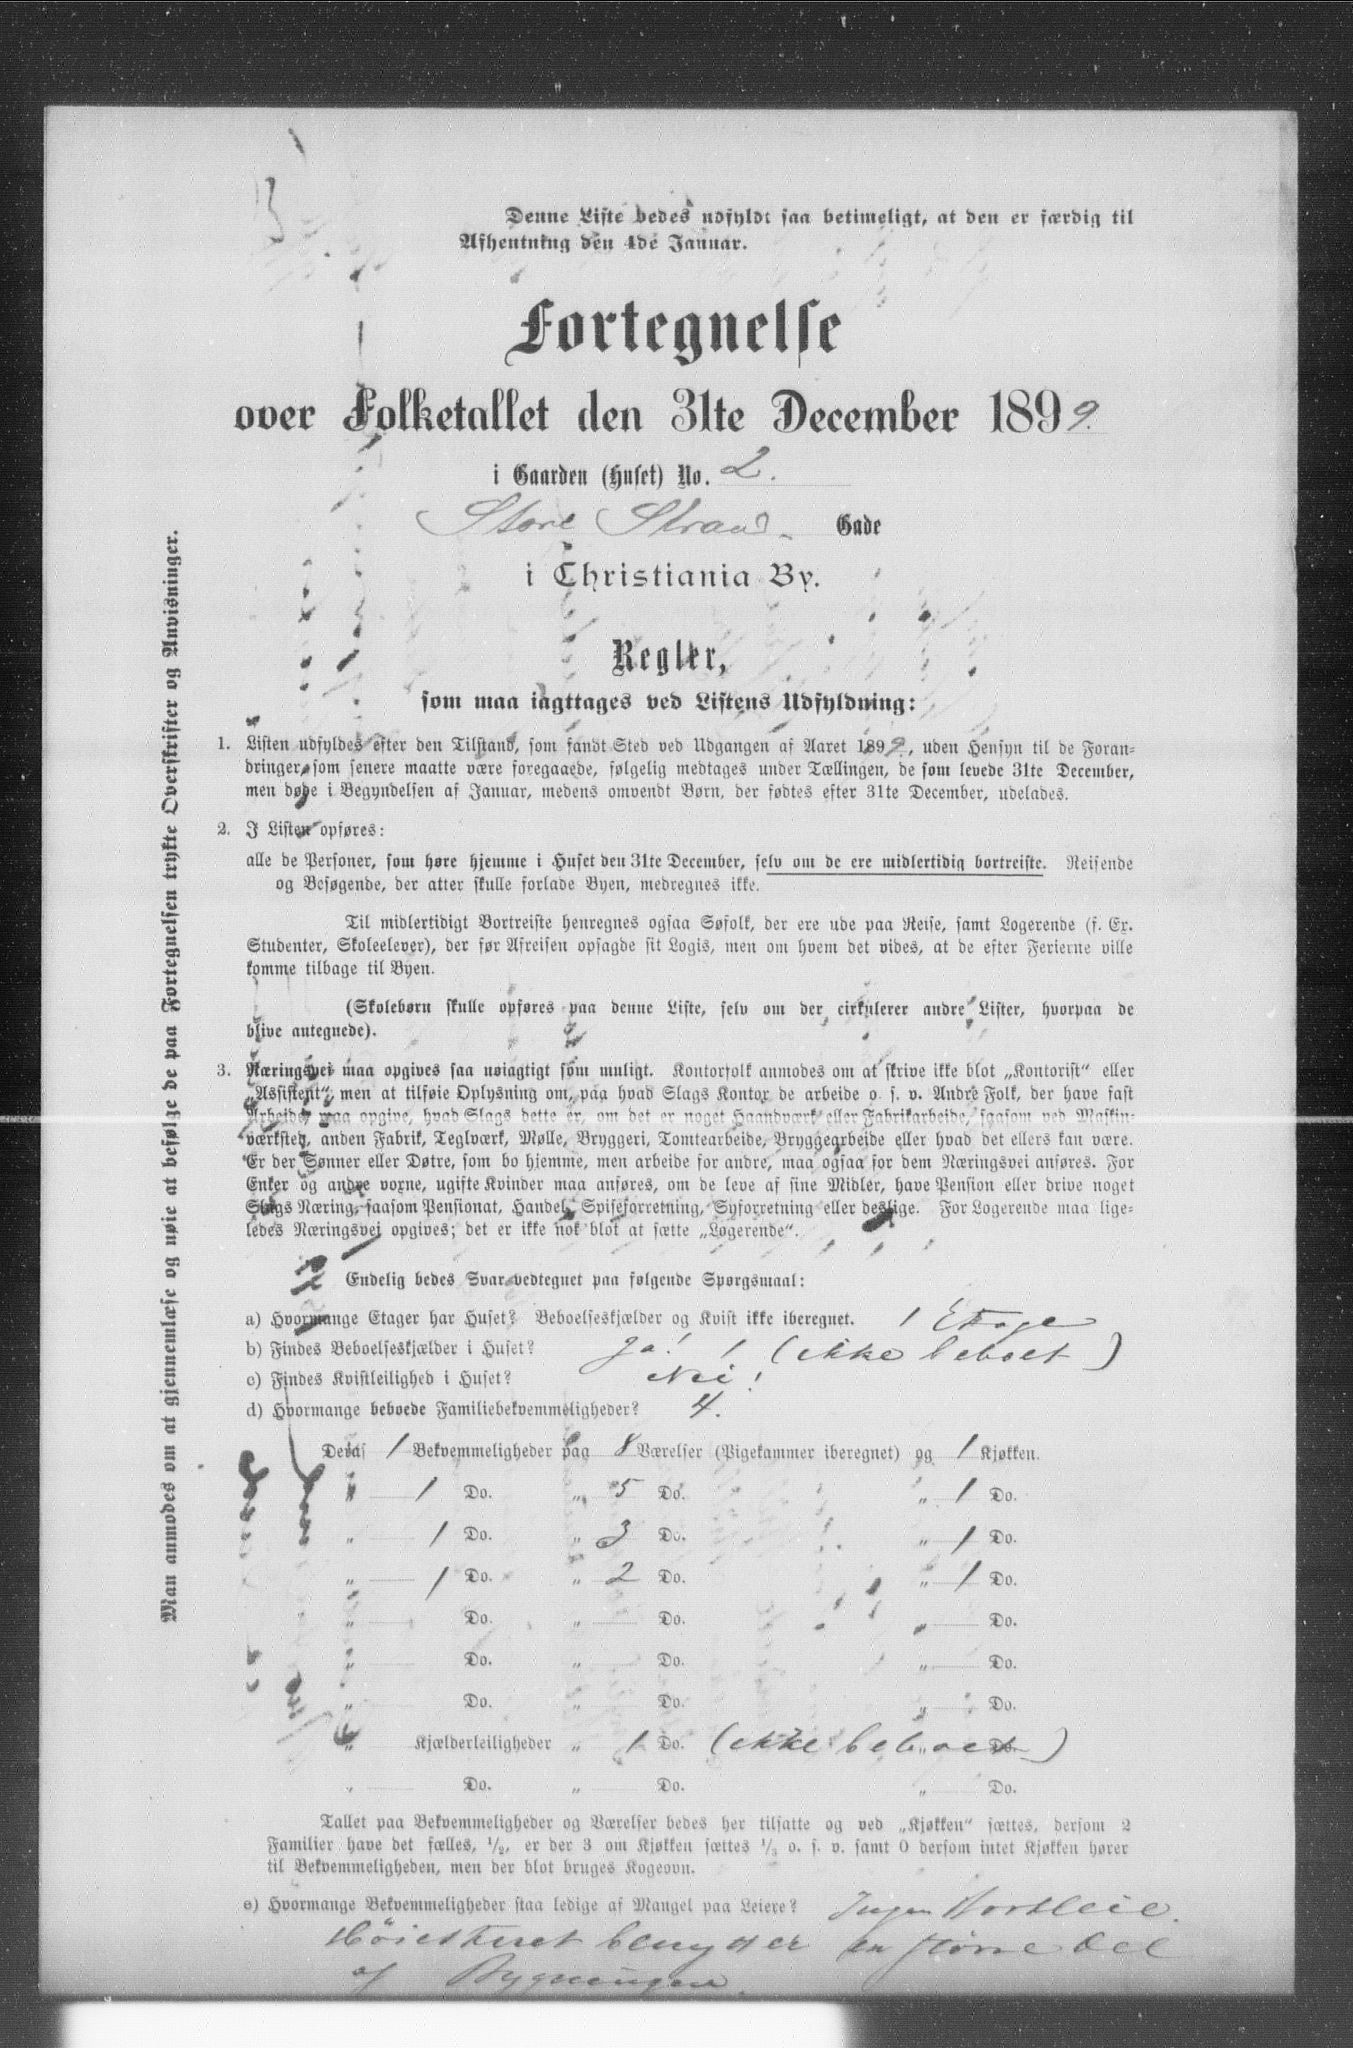 Denne Liste bedes udfyldt saa betimeligt, at den er færdig til
Afhentning den 4de Januar.
Fortegnelse
over Folketallet den 31te December 1899.
i Gaarden (Huset) No. 2.
Store Strand- Gade
i Christiania By.
Regler,
som maa iagttages ved Listens Udfyldning:
1. Listen udfyldes efter den Tilstand, som fandt Sted ved Udgangen af Aaret 1899, uden Hensyn til de Foran-
dringer, som senere maatte være foregaaede, følgelig medtages under Tællingen, de som levede 31te December,
men døde i Begyndelsen af Januar, medens omvendt Børn, der fødtes efter 31te December, udelades.
2. I Listen opføres:
alle de Personer, som høre hjemme i Huset den 31te December, selv om de ere midlertidig bortreiste. Reisende
og Besøgende, der atter skulle forlade Byen, medregnes ikke.
Til midlertidigt Bortreiste henregnes ogsaa Søfolk, der ere ude paa Reise, samt Logerende (f. Ex.
Studenter, Skoleelever), der før Afreisen opsagde sit Logis, men om hvem det vides, at de efter Ferierne ville
komme tilbage til Byen.
(Skolebørn skulle opføres paa denne Liste, selv om der cirkulerer andre Lister, hvorpaa de
blive antegnede).
3. Næringsvei maa opgives saa nøiagtigt som muligt. Kontorfolk anmodes om at skrive ikke blot „Kontorist“ eller
„Assistent“, men at tilføie Oplysning om, paa hvad Slags Kontor de arbeide o. s. v. Andre Folk, der have fast
Arbeide, maa opgive, hvad Slags dette er, om det er noget Haandværk eller Fabrikarbeide, saasom ved Maskin-
værksted, anden Fabrik, Teglværk, Mølle, Bryggeri, Tomtearbeide, Bryggearbeide eller hvad det ellers kan være.
Er der Sønner eller Døtre, som bo hjemme, men arbeide for andre, maa ogsaa for dem Næringsvei anføres. For
Enker og andre voxne, ugifte Kvinder maa anføres, om de leve af sine Midler, have Pension eller drive noget
Slags Næring, saasom Pensionat, Handel, Spiseforretning, Syforretning eller deslige. For Logerende maa lige-
ledes Næringsvei opgives; det er ikke nok blot at sætte „Logerende“.
Endelig bedes Svar vedtegnet paa følgende Spørgsmaal:
a) Hvormange Etager har Huset? Beboelseskjælder og Kvist ikke iberegnet. 1 Etage
b) Findes Beboelseskjælder i Huset? Ja! 1 (ikke beboet)
c) Findes Kvistleilighed i Huset? Nei!
d) Hvormange beboede Familiebekvemmeligheder? 4.
Deraf 1 Bekvemmeligheder paa 8 Værelser (Pigekammer iberegnet) og 1 Kjøkken.
„ 1 Do. „ 5 Do. „ 1 Do.
„ 1 Do. „ 3 Do. „ 1 Do.
„ 1 Do. „ 2 Do. „ 1 Do.
„ Do. „ Do. „ Do.
„ Do. „ Do. „ Do.
„ Do. „ Do. „ Do.
„ Kjælderleiligheder „ 1 Do. (ikke beboet) „ Do.
„ Do. „ Do. „ Do.
Tallet paa Bekvemmeligheder og Værelser bedes her tilsatte og ved „Kjøkken“ sættes, dersom 2
Familier have det fælles, 1/2, er der 3 om Kjøkken sættes 1/3 o. s. v. samt 0 dersom intet Kjøkken hører
til Bekvemmeligheden, men der blot bruges Kogeovn.
e) Hvormange Bekvemmeligheder staa ledige af Mangel paa Leiere? Ingen Bortleie.
Høiesteret benytter en større Del
af Bygningen.
Man anmodes om at gjennemlæse og nøie at befølge de paa Fortegnelsen trykte Overskrifter og Anvisninger.